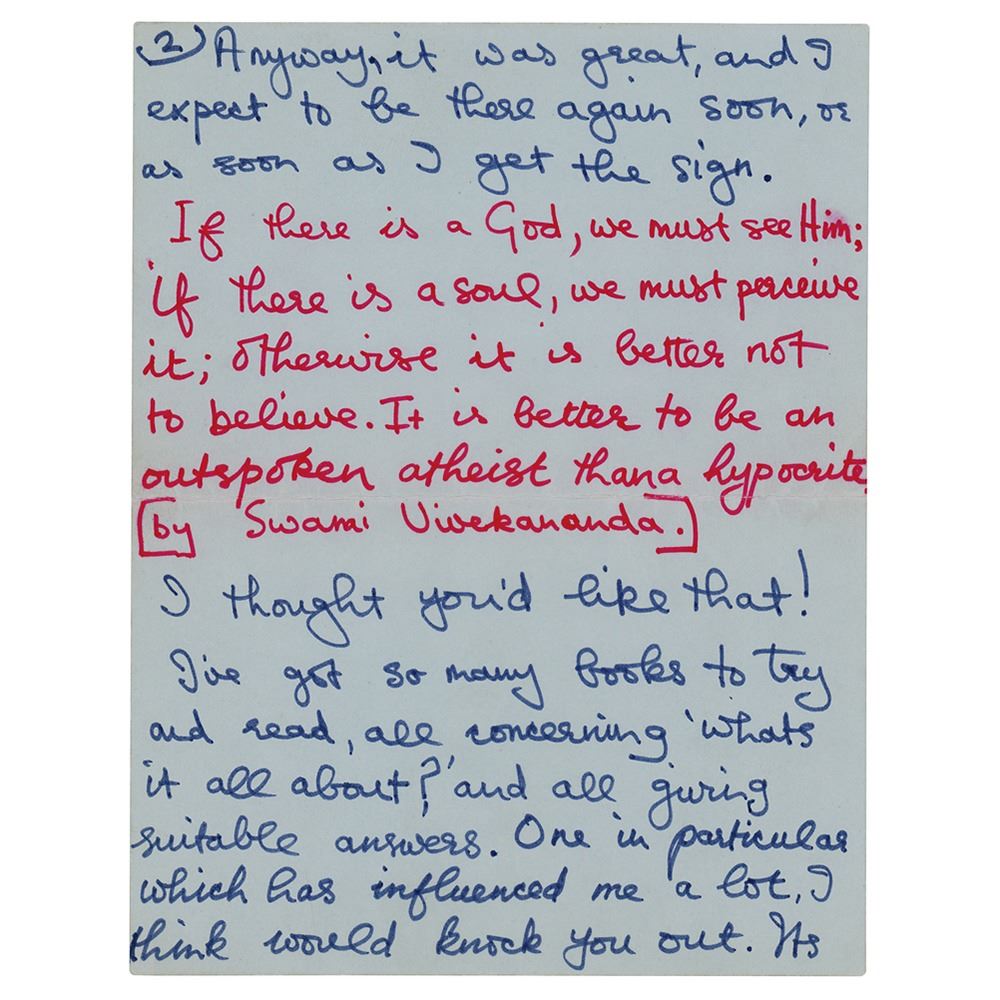 2) Anyway, it was great, and I
expect to be there again soon, or
as soon as I get the sign.
If there is a God, we must see Him;
if there is a soul, we must perceive
it; otherwise it is better not
to believe. It is better to be an
outspoken atheist than a hypocrite
[by Swami Vivekananda.]
I thought you'd like that!
I've got so many books to try
and read, all concerning 'whats
it all about?' and all giving
suitable answers. One in particular
which has influenced me a lot, I
think would knock you out. Its